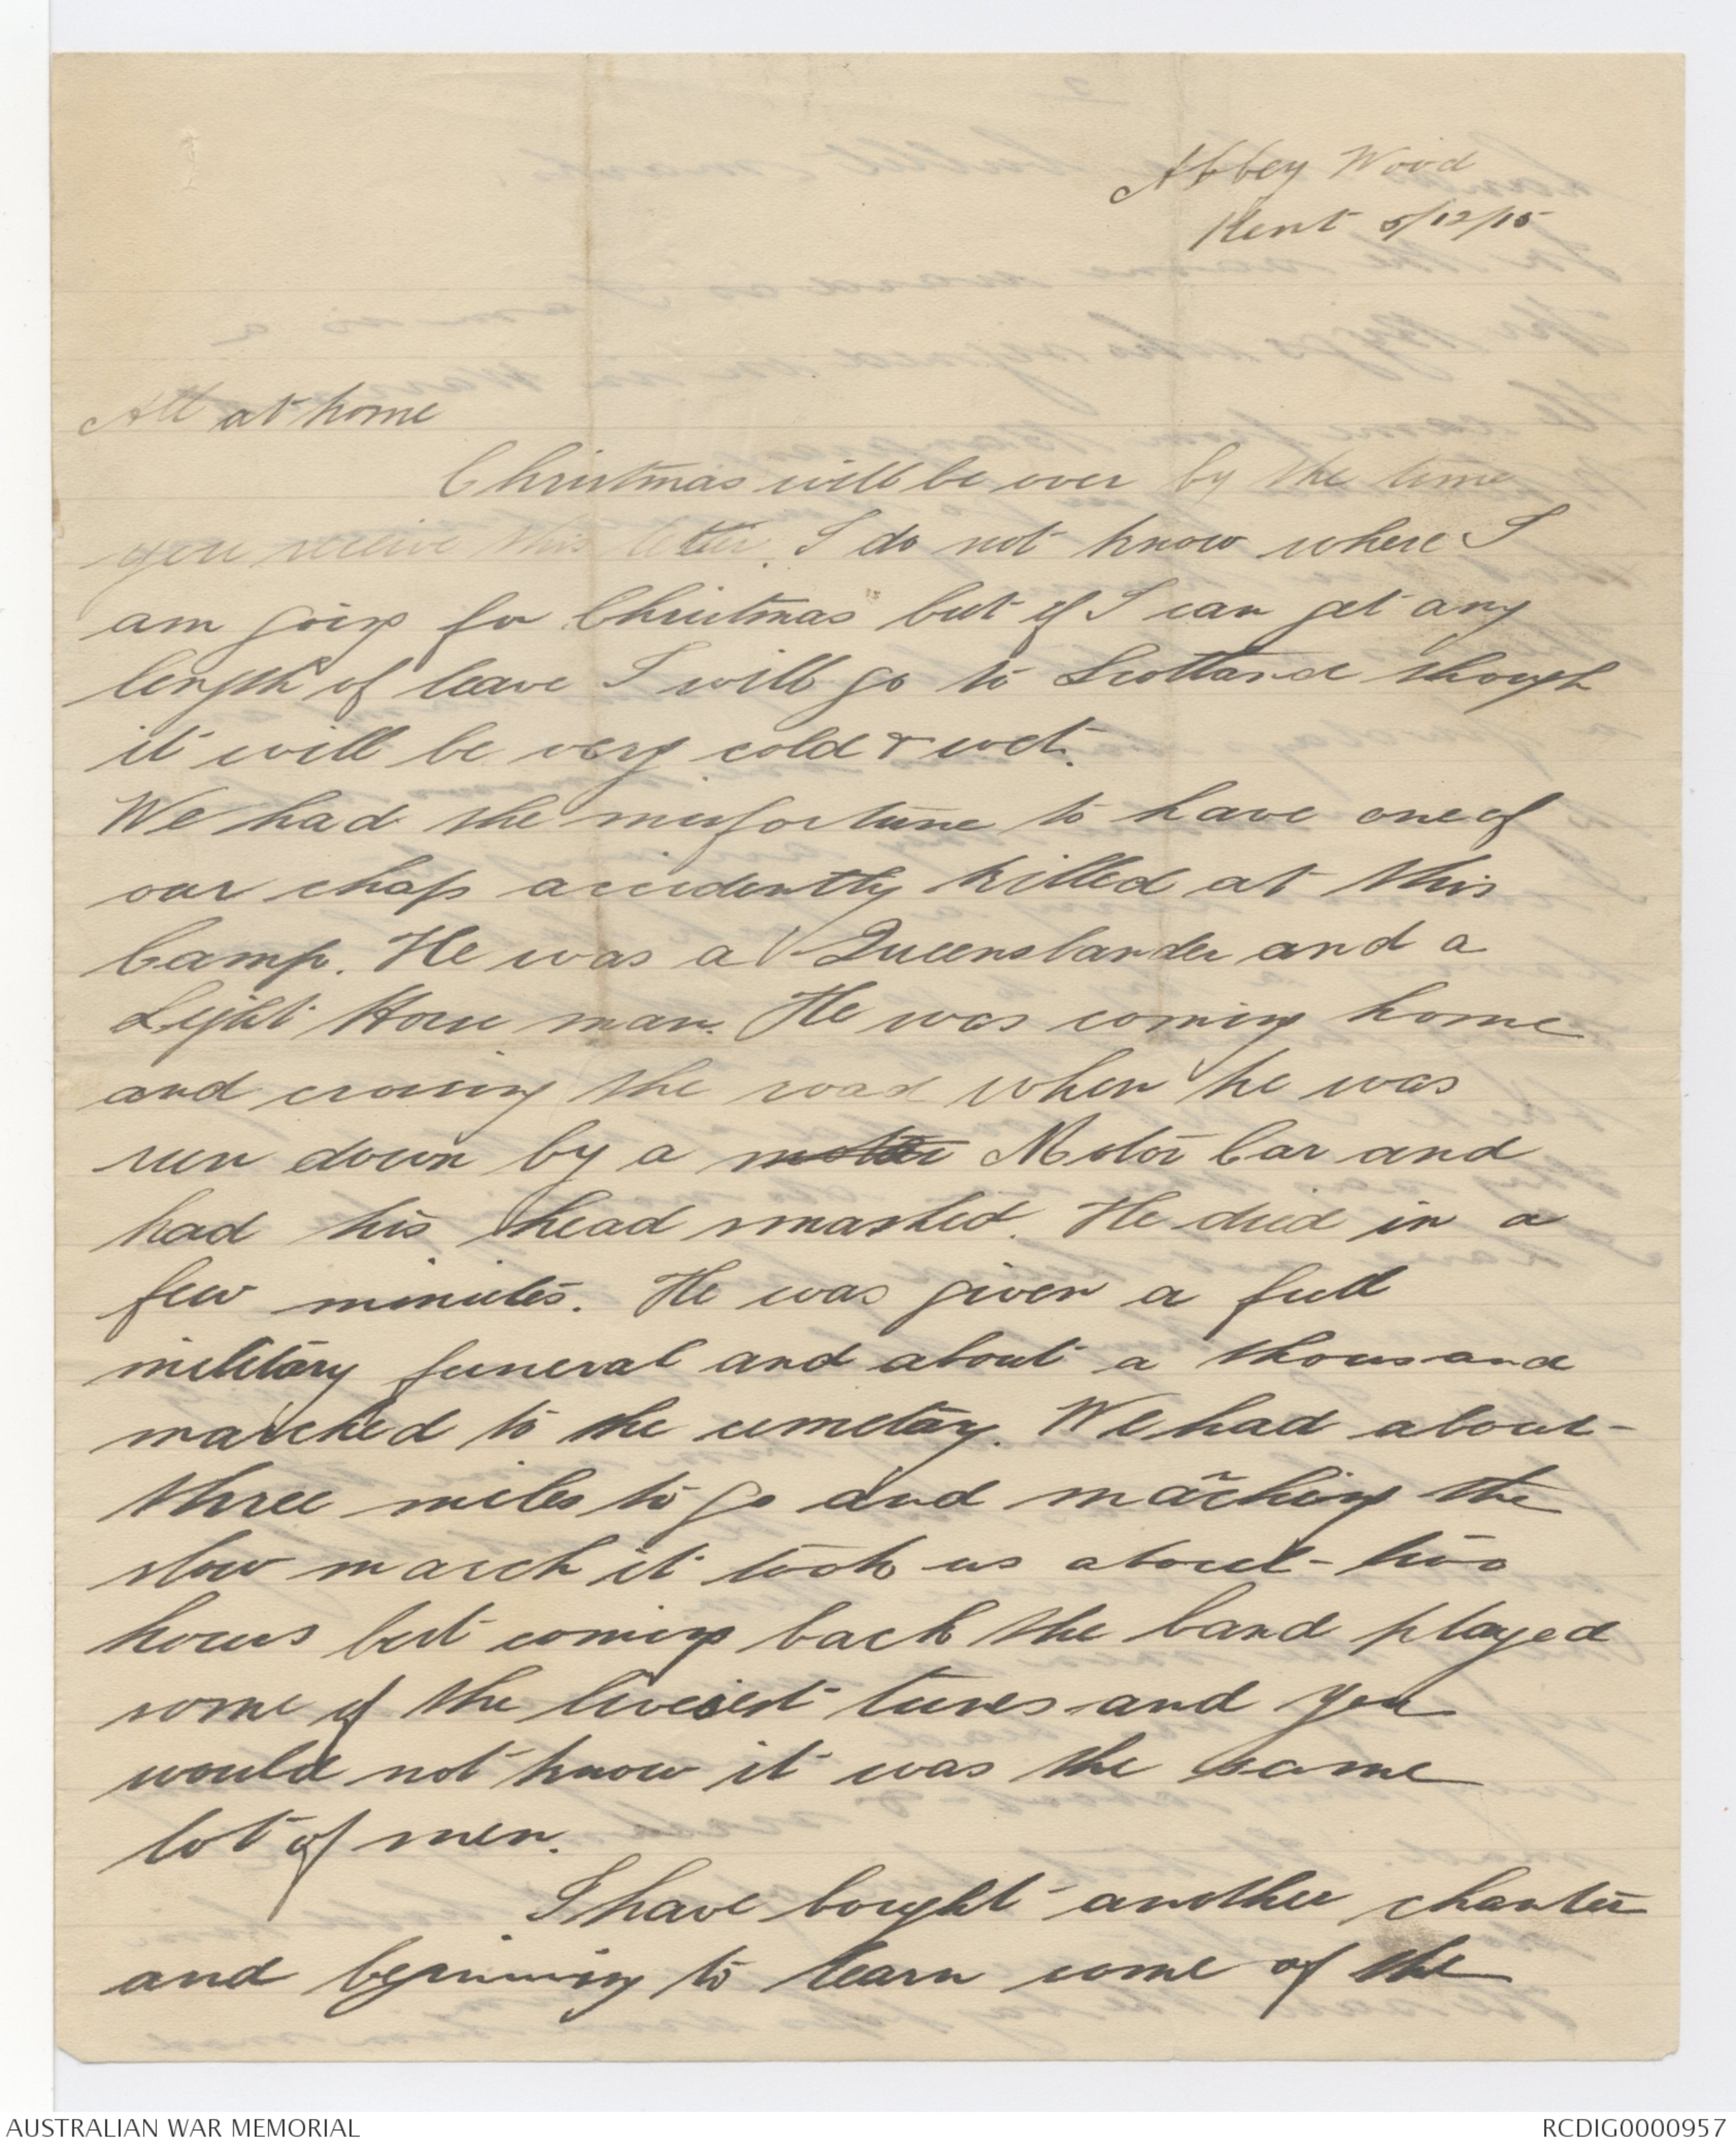 Abbey Wood
Kent 5/12/15
All at home
Christmas will be over by the time
you recieve this letter. I do not know where I
am going for Christmas but if I can get any
length of leave I will go to Scotland though
it will be very cold & wet.
We had the misfortune to have one of
our chaps accidently killed at this
Camp. He was a Queenslander and a
Light Horse man. He was coming home
and crossing the road when he was
run down by a motor Motor Car and
had his head smashed. He died in a
few minutes. He was given a full
military funeral and about a thousand
marched to the cemetary. We had about
three miles to go and marching the
slow march it took us about two
hours but coming back the band played
some of the liveiest tunes and you
would not know it was the same
lot of men.
I have bought another chanter
and beginning to learn some of the
AUSTRALIAN WAR MEMORIAL
RCDIG0000957